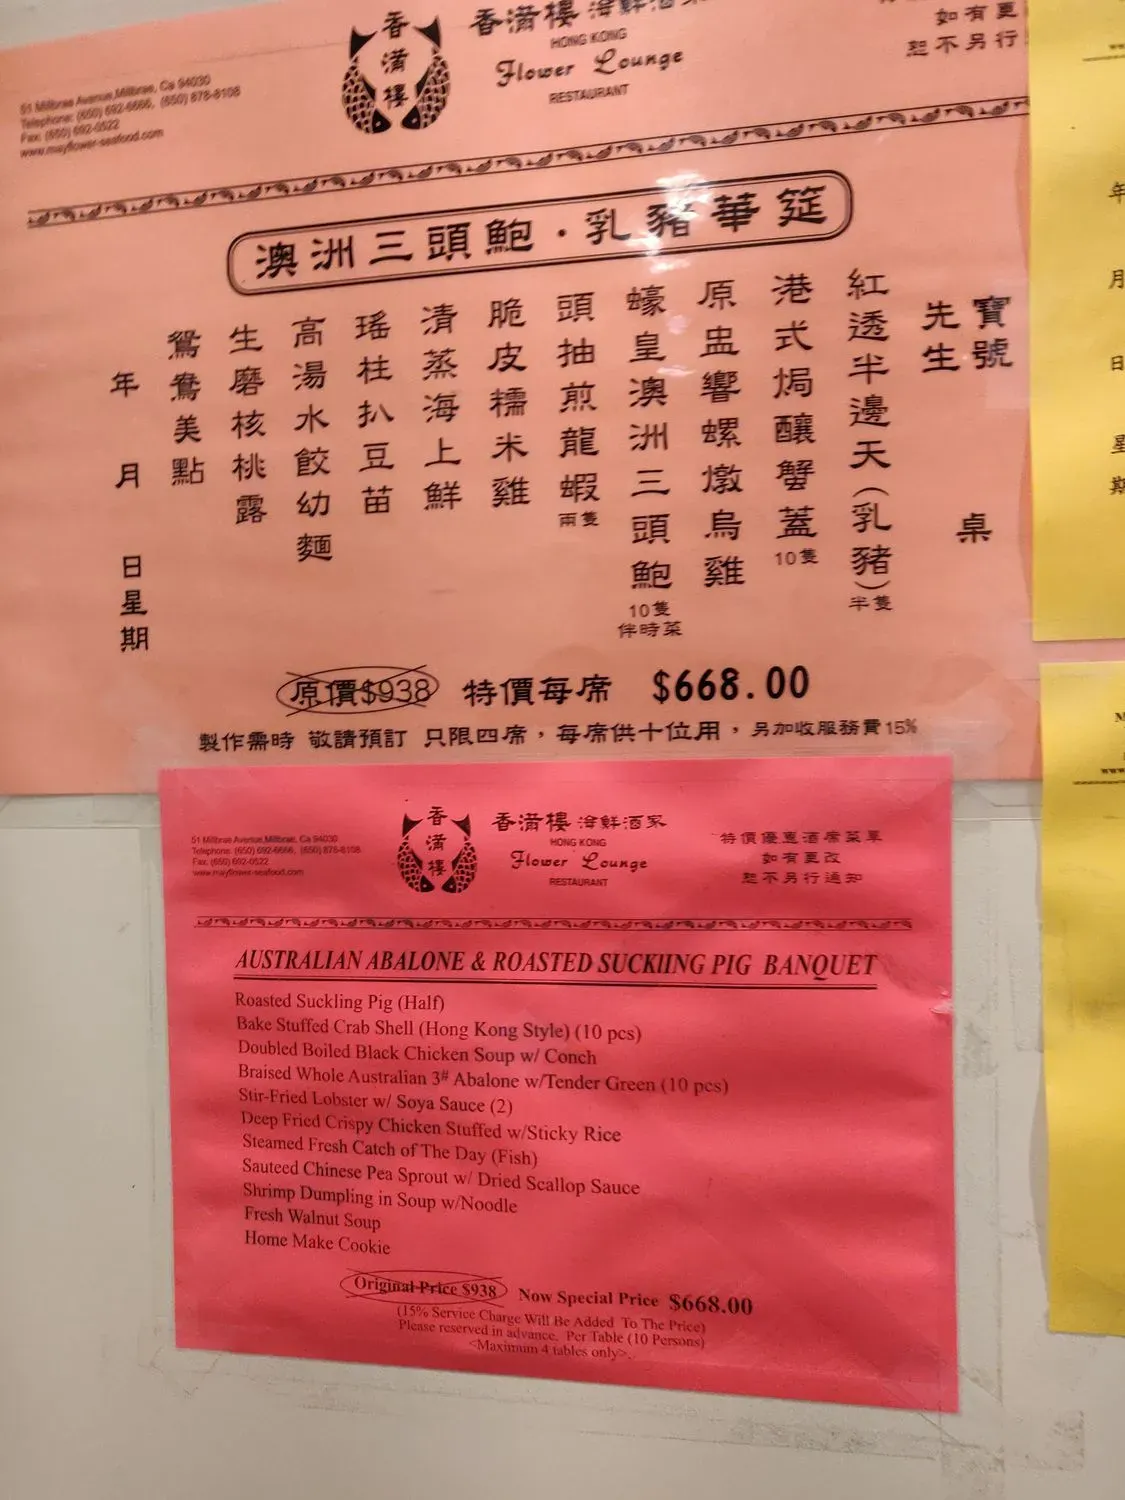 51 Millbrae Avenue,Millbrae, Ca 94030
Telephone: (650) 692-6666, (650) 878-8108
Fax: (650) 692-0522
www.mayflower-seafood.com
香滿樓
香滿樓 海鮮酒家
HONG KONG
Flower Lounge
RESTAURANT
如有更
恕不另行
澳洲三頭鮑·乳豬華筵
寶號
先生
桌
紅透半邊天(乳豬)半隻
港式焗釀蟹蓋10隻
原盅響螺燉烏雞
蠔皇澳洲三頭鮑10隻
伴時菜
頭抽煎龍蝦兩隻
脆皮糯米雞
清蒸海上鮮
瑤柱扒豆苗
高湯水餃幼麵
生磨核桃露
鴛鴦美點
年 月 日星期
原價$938 特價每席 $668.00
製作需時 敬請預訂 只限四席，每席供十位用，另加收服務費15%
51 Millbrae Avenue,Millbrae, Ca 94030
Telephone: (650) 692-6666, (650) 878-8108
Fax: (650) 692-0522
www.mayflower-seafood.com
香滿樓
香滿樓 海鮮酒家
HONG KONG
Flower Lounge
RESTAURANT
特價優惠酒席菜單
如有更改
恕不另行通知
AUSTRALIAN ABALONE & ROASTED SUCKIING PIG BANQUET
Roasted Suckling Pig (Half)
Bake Stuffed Crab Shell (Hong Kong Style) (10 pcs)
Doubled Boiled Black Chicken Soup w/ Conch
Braised Whole Australian 3# Abalone w/Tender Green (10 pcs)
Stir-Fried Lobster w/ Soya Sauce (2)
Deep Fried Crispy Chicken Stuffed w/Sticky Rice
Steamed Fresh Catch of The Day (Fish)
Sauteed Chinese Pea Sprout w/ Dried Scallop Sauce
Shrimp Dumpling in Soup w/Noodle
Fresh Walnut Soup
Home Make Cookie
Original Price $938 Now Special Price $668.00
(15% Service Charge Will Be Added To The Price)
Please reserved in advance. Per Table (10 Persons)
<Maximum 4 tables only>.
年
月
日
星
期